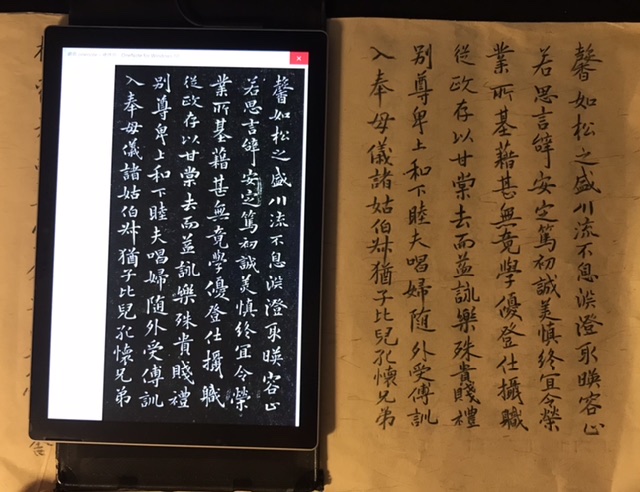 馨如松之盛川流不息淵澄取暎容止
若思言辭安定篤初誠美慎終宜令榮
業所基藉甚無竟學優登仕攝職
從政存以甘棠去而益詠樂殊貴賤禮
別尊卑上和下睦夫唱婦隨外受傅訓
入奉母儀諸姑伯叔猶子比兒孔懷兄弟
馨如松之盛川流不息淵澄取暎容止
若思言辭安定篤初誠美慎終宜令榮
業所基藉甚無竟學優登仕攝職
從政存以甘棠去而益詠樂殊貴賤禮
別尊卑上和下睦夫唱婦隨外受傅訓
入奉母儀諸姑伯叔猶子比兒孔懷兄弟